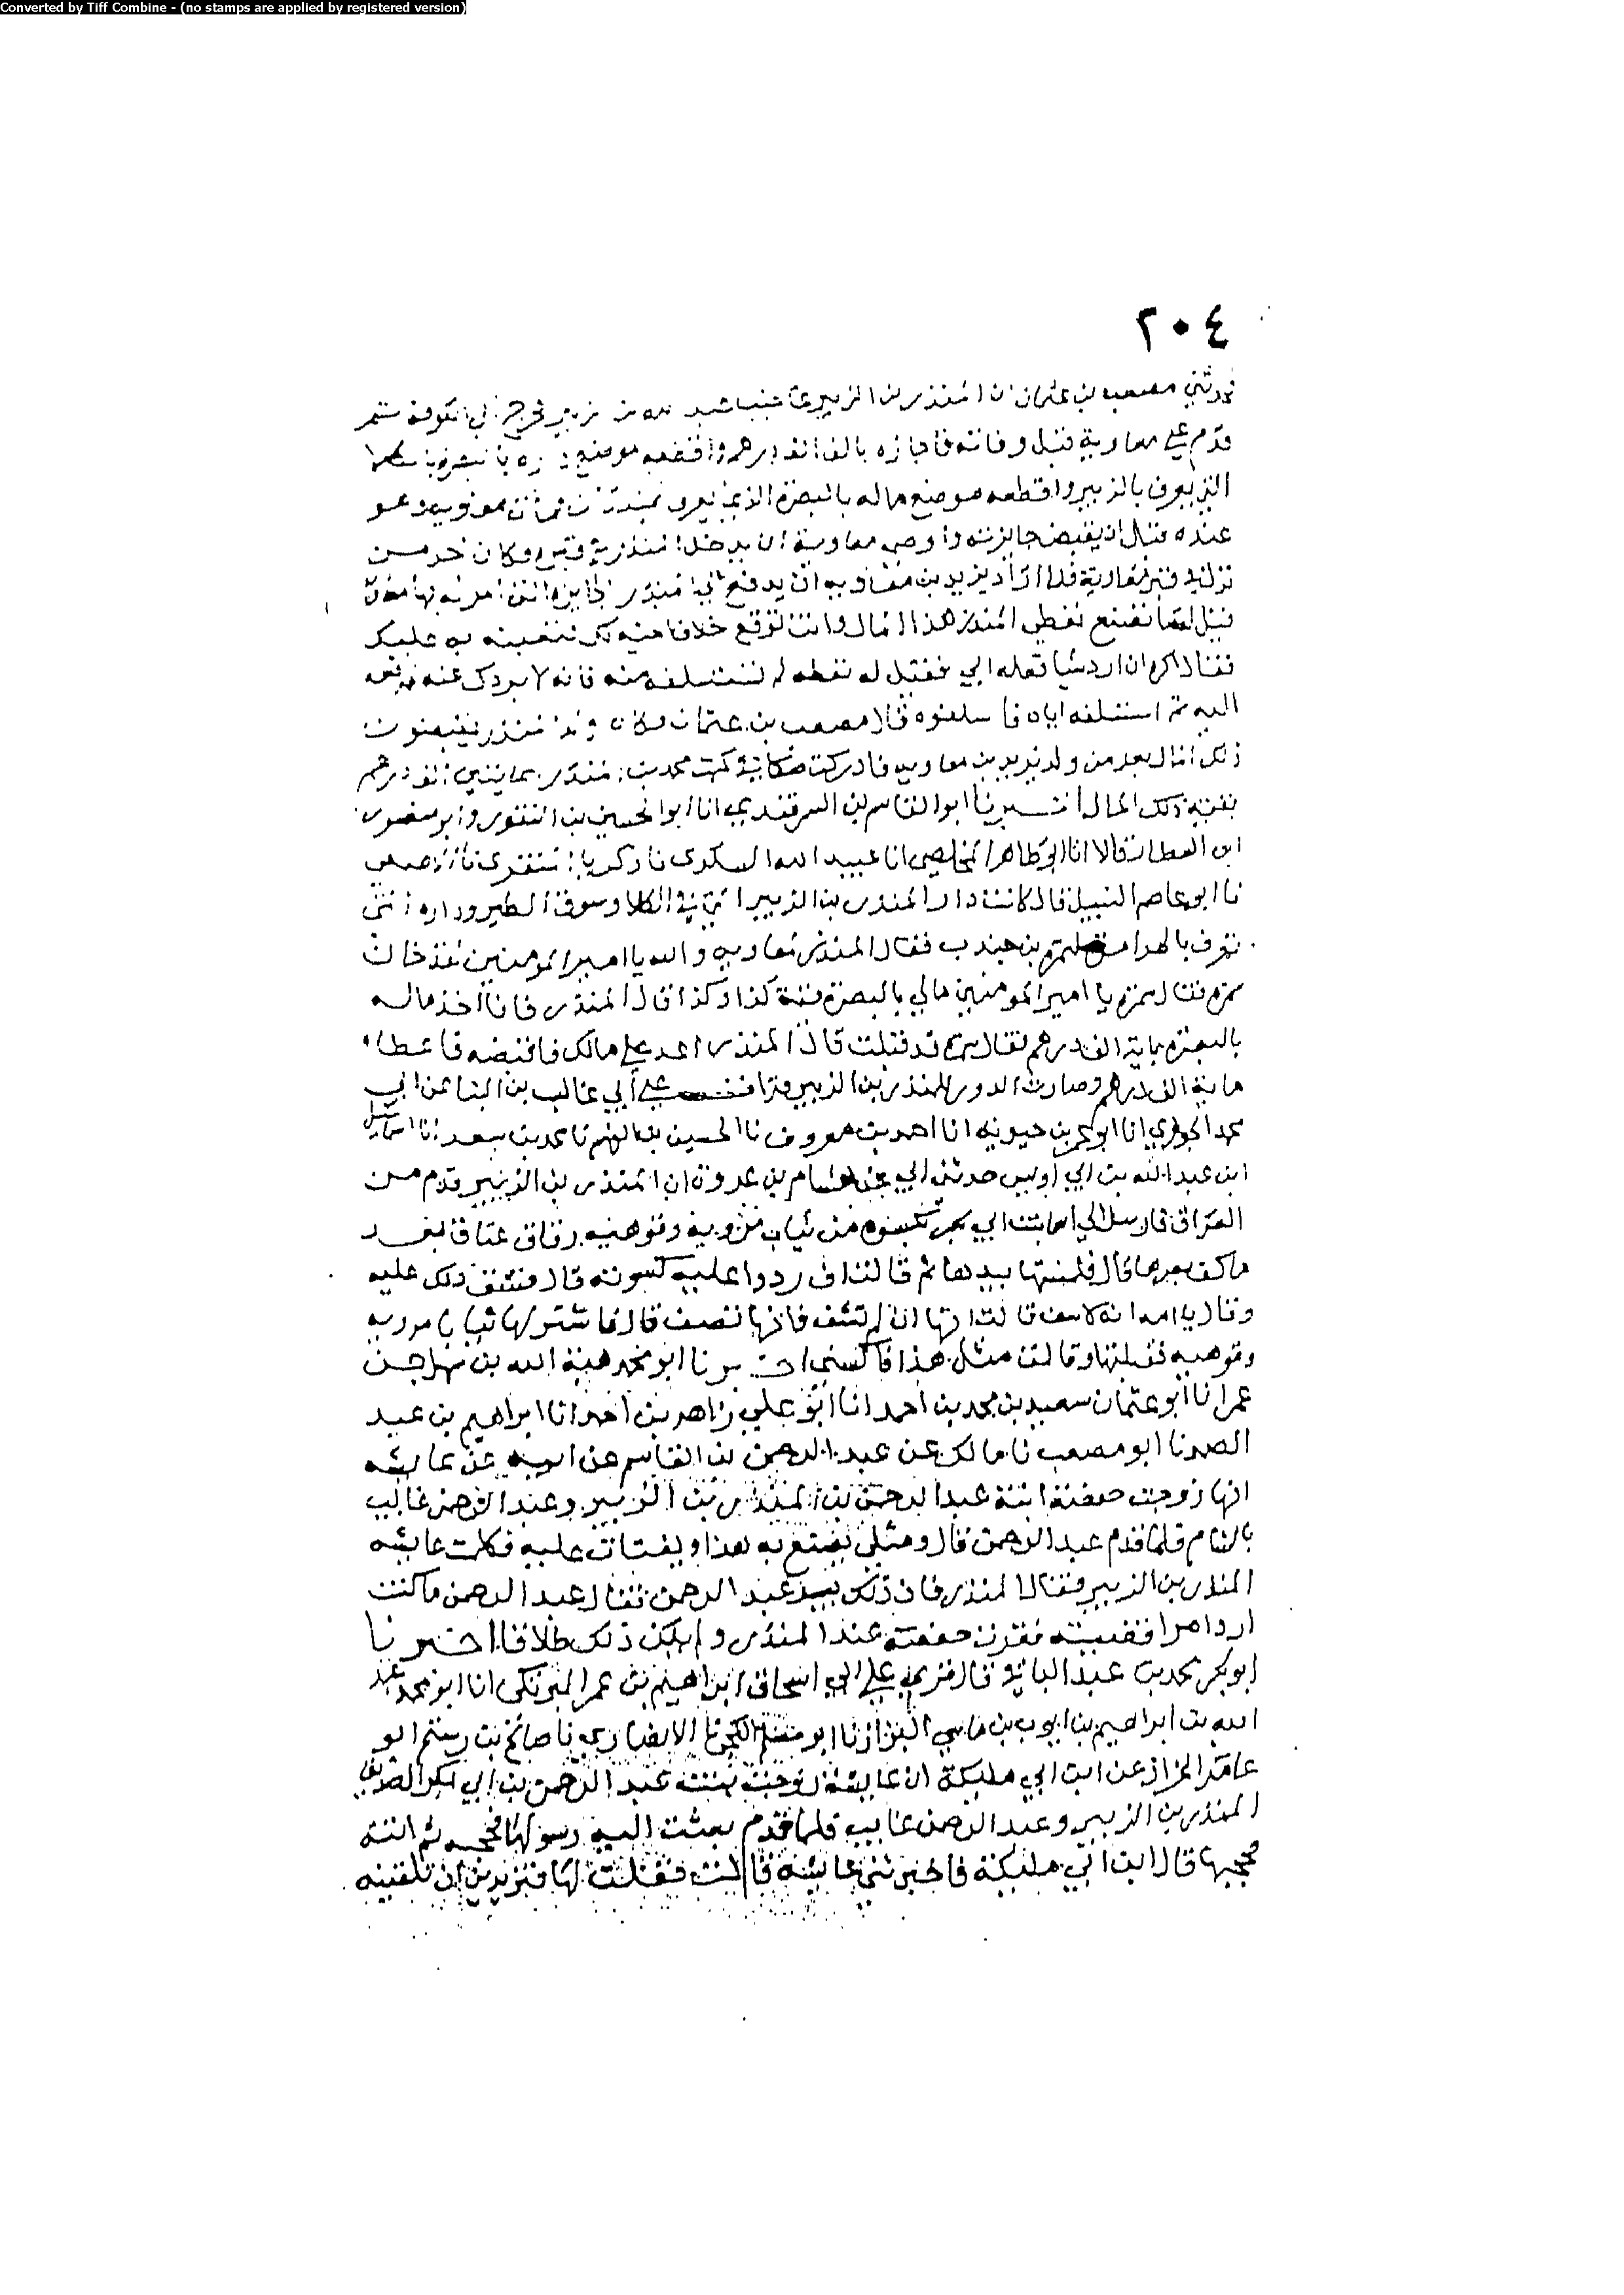 Converted by Tiff Combine - (no stamps are applied by registered version)
٢٠٤
مصعب بن عثمان ان المنذر بن الزبير فخرج الى الكوفة ثم
قدم على معاوية قبل وفاته فاجازه بالف الف درهم واقطعه موضع داره بالبصرة
التي يعرف بالزبير واقطعه موضع ماله بالبصرة الذي يعرف وهو
عنده قبل ان يقبض جايزته واوصى معاوية ان يدخل المنذر في قبره وكان احد من
نزل في قبر معاوية فلما اراد يزيد بن معاوية ان يدفع الى المنذر الجايزة التي امر له بها معاوية
فقيل له ما تصنع تعطي المنذر هذا المال وانت تتوقع خلافا منه لك فتعينه به عليك
فقال اكره ان ارد شيا فعله ابي فقيل له تعطه ثم تستسلفه منه فانه لا يردك عنه فدفعه
اليه ثم استسلفه اياه فاسلفوه قال مصعب بن عثمان فكان ولد المنذر يقبضون
ذلك المال بعد من ولد يزيد بن معاوية فادركت محمد بن المنذر بمايتي الف درهم
بقية ذلك المال اخبرنا ابو القاسم بن السمرقندي انا ابو الحسين بن النقور وابو منصور
ابن العطار قالا انا ابو طاهر المخلص انا عبيد الله السكري نا زكريا المنقري نا الاصمعي
نا ابو عاصم النبيل قال كانت دار المنذر بن الزبير التي في الكلا وسوق الطير وداره التي
تعرف لسمرة بن جندب فقال المنذر لمعاوية والله يا امير المومنين لقد خان
سمرة فقال سمرة يا امير المومنين مالي بالبصرة قيمة كذا وكذا قال المنذر فانا اخذ ماله
بالبصرة بماية الف درهم فقال سمرة قد قبلت قال المنذر اعد علي مالك فاقبضه فاعطاه
ماية الف درهم وصارت الدور للمنذر بن الزبير قرات على ابي غالب بن البنا عن ابي
محمد الجوهري انا ابو عمر بن حيويه انا احمد بن معروف نا الحسين بن الفهم نا محمد بن سعد انا اسماعيل
ابن عبد الله بن ابي اويس حدثني ابي عن هشام بن عروة ان المنذر بن الزبير قدم من
العراق فارسل الى اسما بنت ابي بكر بكسوة من ثياب مروية وقوهية رقاق عتاق بعد
ما كف بصرها قال فلمستها بيدها ثم قالت اف ردوا عليه كسوته قال فشق ذلك عليه
وقال يا امه انه لا يشف قالت انها ان لم تشف فانها تصف قال فاشترى لها ثيابا مروية
وقوهية فقبلتها وقالت مثل هذا فاكسني اخبرنا ابو محمد هبة الله بن سهل بن
عمر انا ابو عثمان سعيد بن محمد بن احمد انا ابو علي زاهر بن احمد انا ابراهيم بن عبد
الصمد نا ابو مصعب نا مالك عن عبد الرحمن بن القاسم عن ابيه عن عايشه
انها زوجت حفصة ابنة عبد الرحمن بن المنذر بن الزبير وعبد الرحمن غايب
بالشام فلما قدم عبد الرحمن قال ومثلي يصنع به هذا ويفتات عليه فكلمت عايشه
المنذر بن الزبير فقال المنذر فان ذلك بيد عبد الرحمن فقال عبد الرحمن ما كنت
ارد امرا قضيته فقرت حفصة عند المنذر ولم يكن ذلك طلاقا اخبرنا
ابو بكر محمد بن عبد الباقي قال قرئ على ابي اسحاق ابراهيم بن عمر البرمكي انا ابو محمد عبد
الله بن ابراهيم بن ايوب بن ماسي البزاز نا ابو مسلم الكجي نا الانصاري نا صالح بن رستم ابو
عامر الخزاز عن ابن ابي مليكة ان عايشة زوجت بنت عبد الرحمن بن ابي بكر الصديق
المنذر بن الزبير وعبد الرحمن غايب فلما قدم بعثت اليه رسولها فحجبه ثم اتته
فحجبها قال ابن ابي مليكة فاخبرتني عايشة قالت فقلت لها فتريدين ان تلقينه